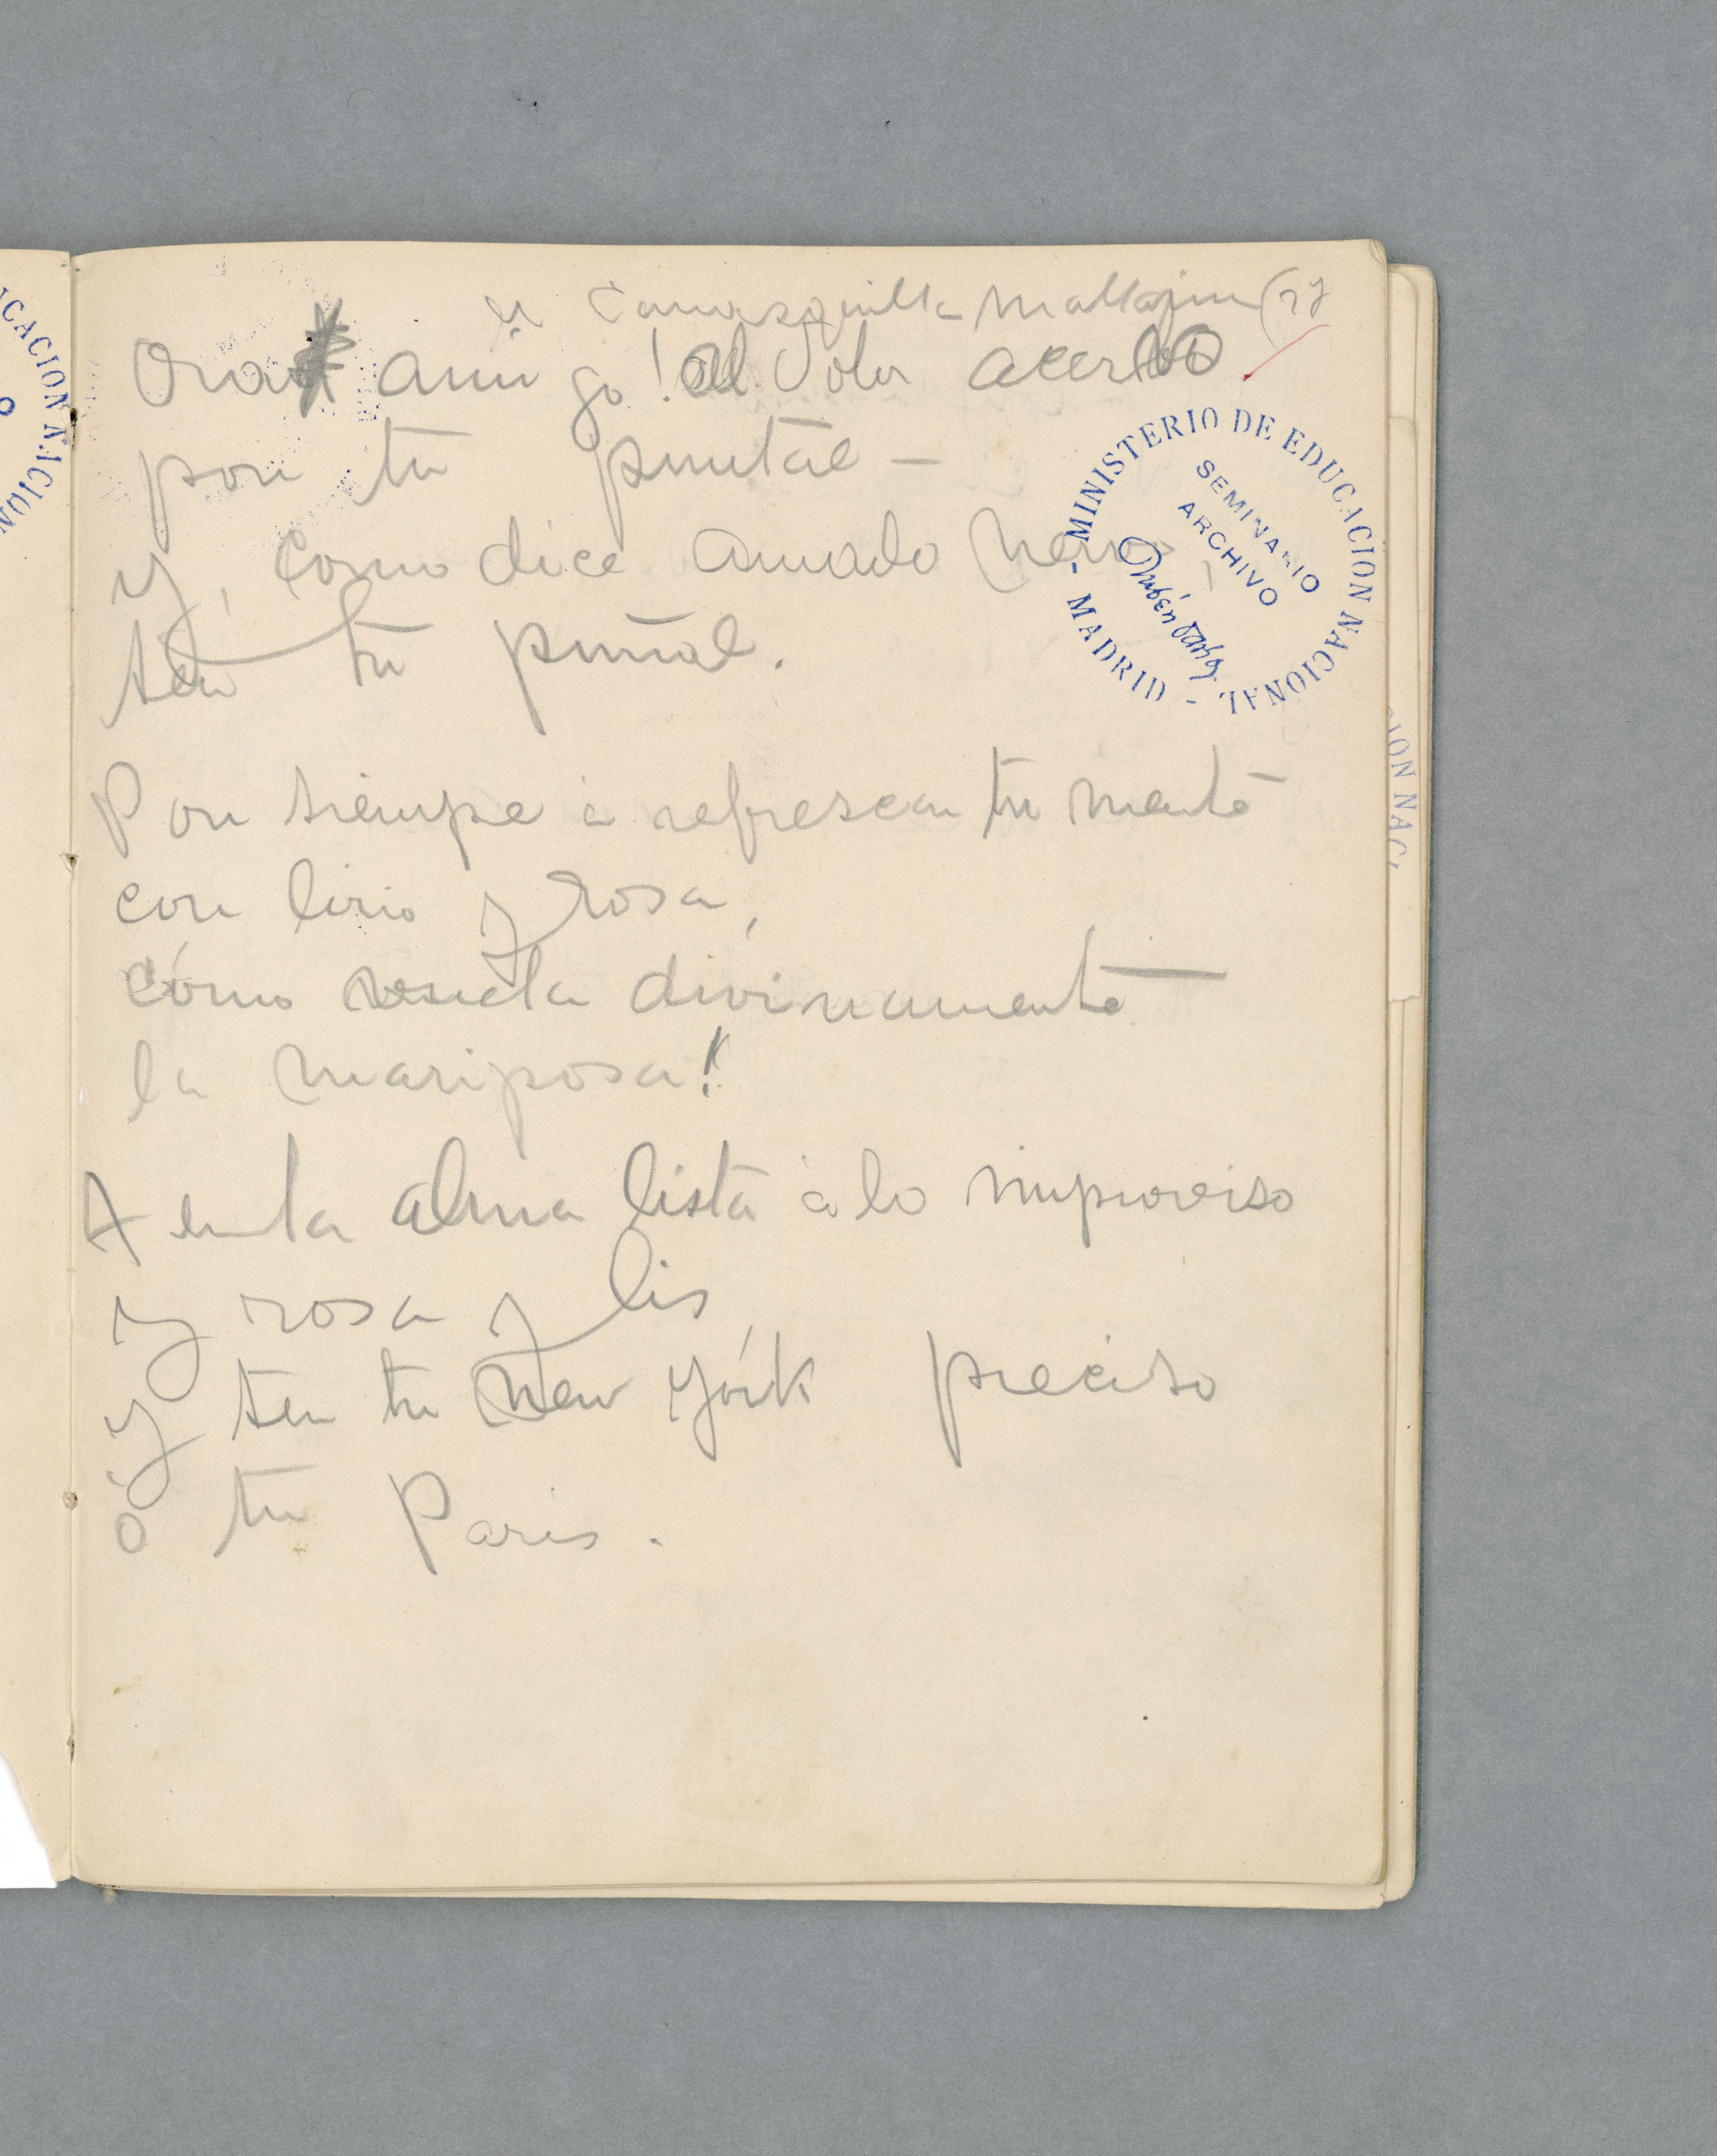 a Carrasquilla Mallarino (27
Ora amigo! al dolor acerbo
pon tu puntal —
y, como dice Amado Nervo,
ten tu puñal.
Pon siempre à refrescar tu mente
con lirio y rosa,
cómo vuela divinamente
la mariposa!
alma lista à lo improviso
y rosa y lis
y ten tu New Yórk preciso
ó tu Paris.
MINISTERIO DE EDUCACION NACIONAL
- MADRID -
SEMINARIO
ARCHIVO
Rubén Darío
CACION NACION
CION NAC